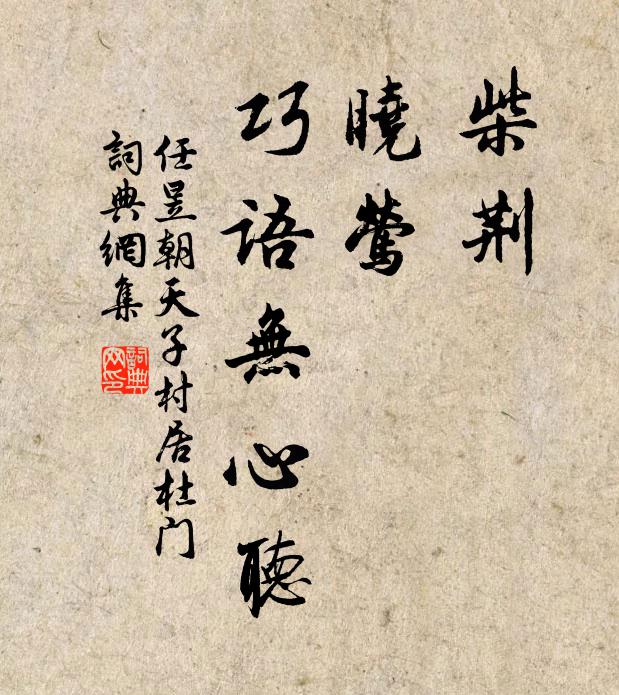 柴荆
曉鶯
巧語無心聽
任昱朝天子村居杜门
詞典網集
詞典网印